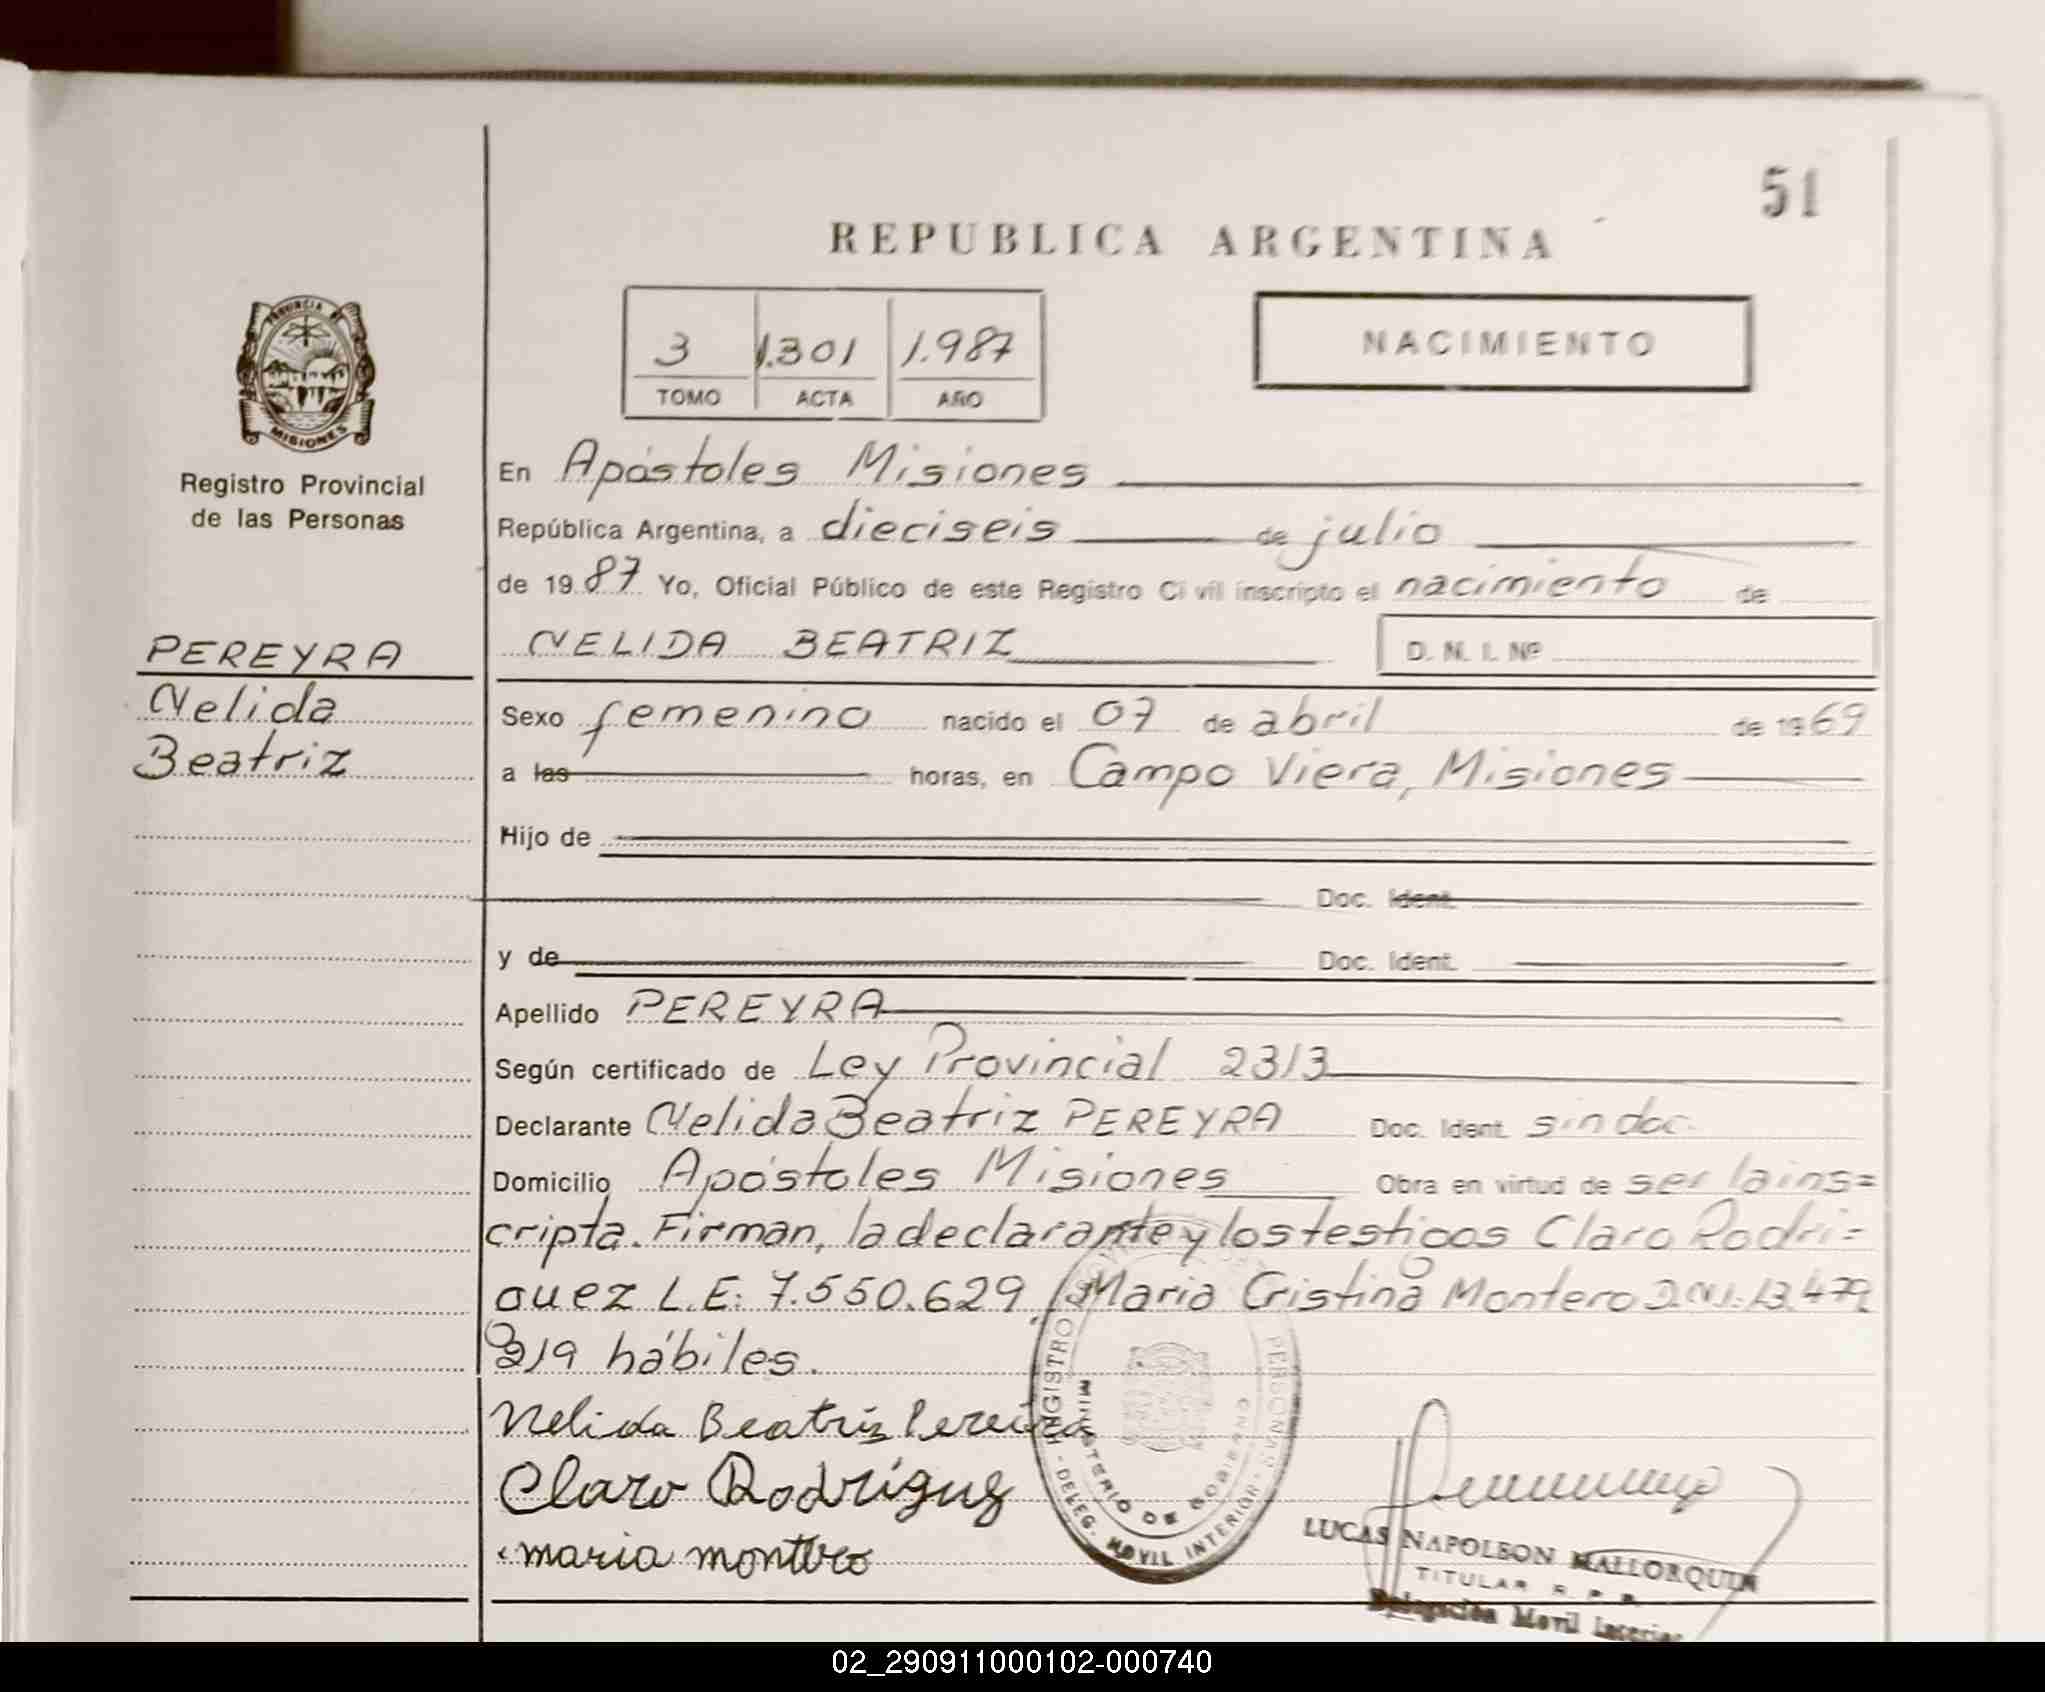 51
REPUBLICA ARGENTINA
3 1.301 1.987
TOMO ACTA AÑO
NACIMIENTO
PROVINCIA DE
MISIONES
Registro Provincial
de las Personas
PEREYRA
Nelida
Beatriz
En Apóstoles Misiones
República Argentina, a dieciseis de julio
de 1987 Yo, Oficial Público de este Registro Civil inscripto el nacimiento de
NELIDA BEATRIZ D. N. I. Nº
Sexo femenino nacido el 07 de abril de 1969
a las horas, en Campo Viera, Misiones
Hijo de
Doc. Ident.
y de Doc. Ident.
Apellido PEREYRA
Según certificado de Ley Provincial 2313
Declarante Nelida Beatriz PEREYRA Doc. Ident. sin doc.
Domicilio Apóstoles Misiones Obra en virtud de ser la ins=
cripta. Firman, la declarante y los testigos Claro Rodri=
guez L.E. 7.550.629, Maria Cristina Montero D.N.I. 13.479
219 hábiles.
Nelida Beatriz Pereira
Claro Rodrigues
maria montero
REGISTRO PERSONAS
MINISTERIO DE GOBIERNO
- DELEG. MOVIL INTERIOR -
LUCAS NAPOLEON MALLORQUIN
TITULAR R. P. P.
Delegación Movil Interior
02_290911000102-000740